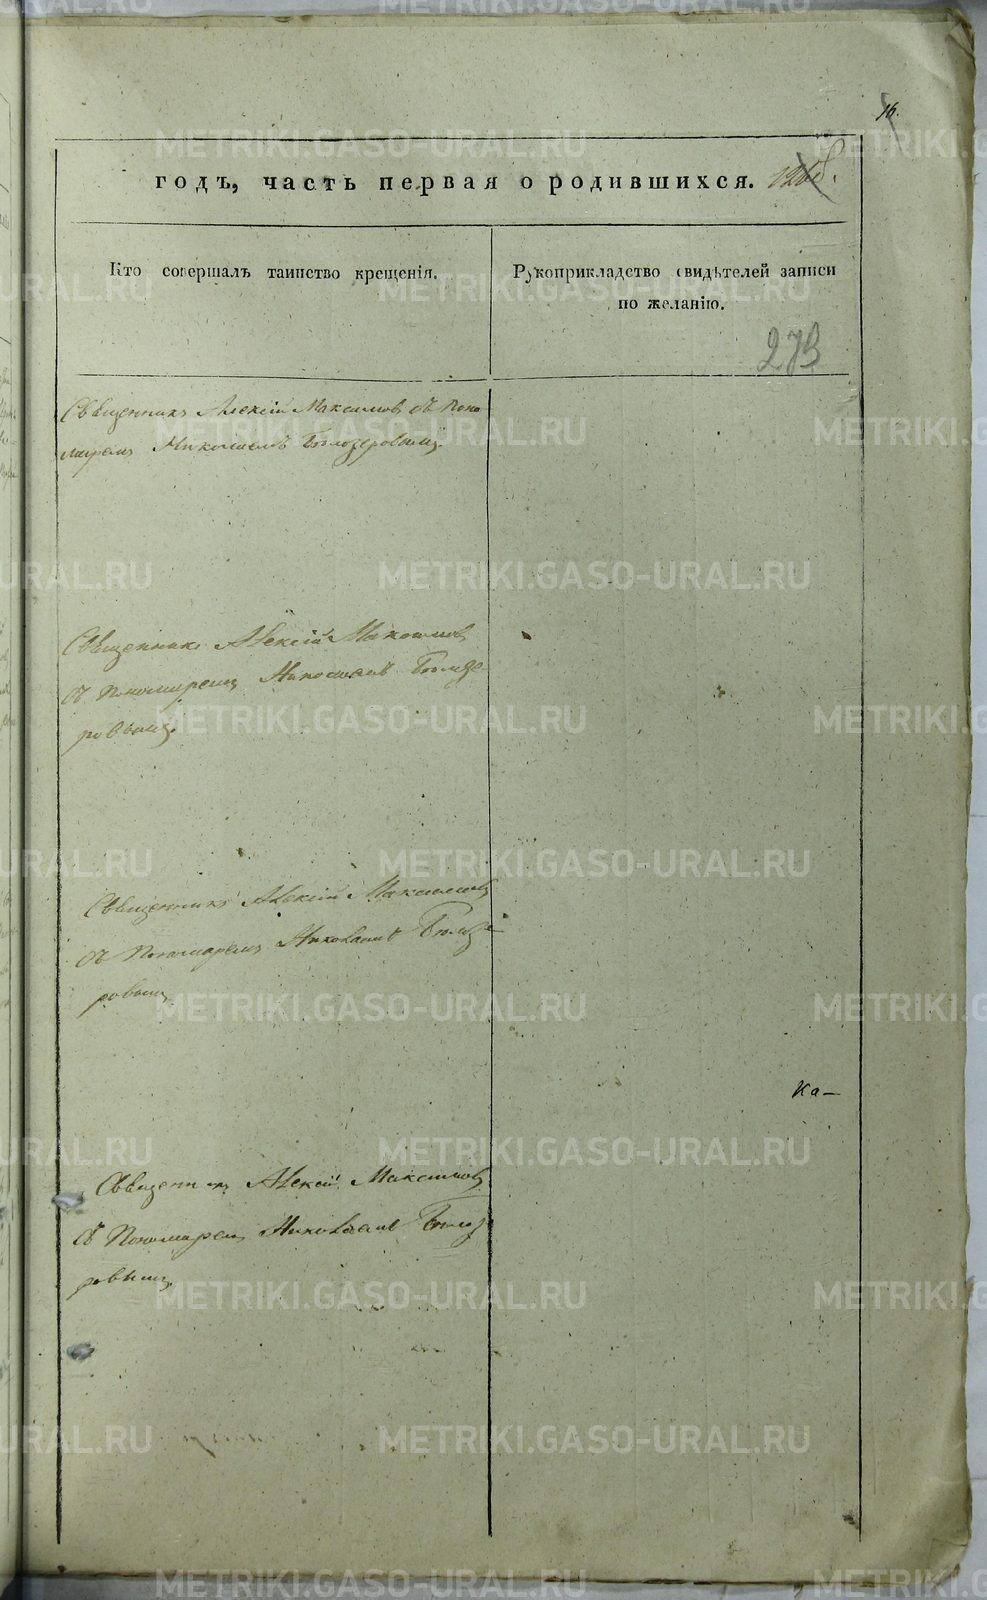 16.
годъ, часть первая о родившихся.
Кто совершалъ таинство крещенія.
Рукоприкладство свидѣтелей записи
по желанію.
273
Священникъ Алексій Максимовъ съ поно
маремъ Николаемъ Бѣлозеровымъ.
Священникъ Алексій Максимовъ
съ Пономаремъ Николаемъ Бѣлозе
ровымъ.
Священникъ Алексій Максимовъ
съ Пономаремъ Николаемъ Бѣлозе-
ровымъ
Ка-
Священникъ Алексій Максимовъ
съ Пономаремъ Николаемъ Бѣлозе
ровымъ.
METRIKI.GASO-URAL.RU